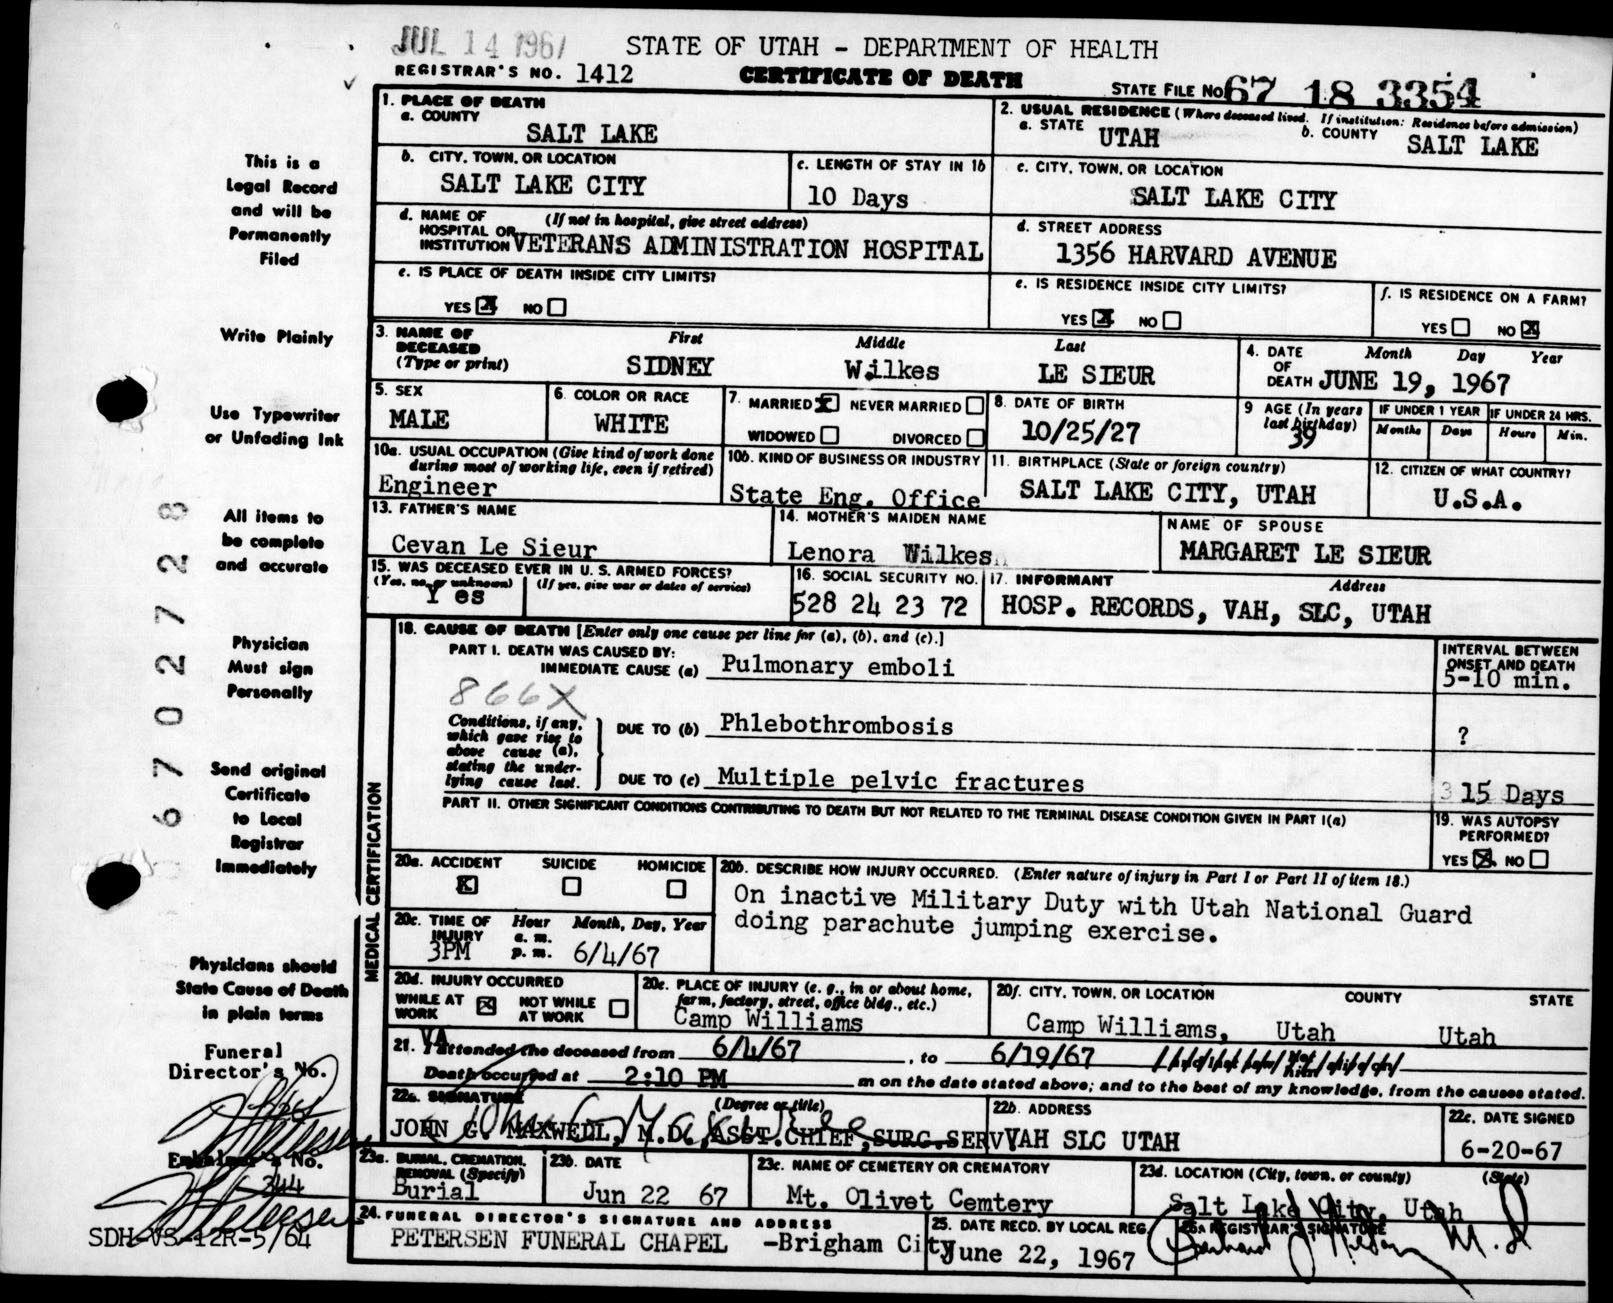 JUL 14 1967
STATE OF UTAH - DEPARTMENT OF HEALTH
REGISTRAR'S NO. 1412
CERTIFICATE OF DEATH
STATE FILE NO. 67 18 3354
This is a
Legal Record
and will be
Permanently
Filed
Write Plainly
Use Typewriter
or Unfading Ink
All items to
be complete
and accurate
Physician
Must sign
Personally
Send original
Certificate
to Local
Registrar
Immediately
Physicians should
State Cause of Death
in plain terms
Funeral
Director's No.
Embalmer's No.
344
SDH-VS-12R-5/64
67027728
1. PLACE OF DEATH
a. COUNTY
SALT LAKE
2. USUAL RESIDENCE (Where deceased lived. If institution: Residence before admission)
a. STATE UTAH b. COUNTY SALT LAKE
b. CITY, TOWN, OR LOCATION
SALT LAKE CITY
c. LENGTH OF STAY IN 1b
10 Days
c. CITY, TOWN, OR LOCATION
SALT LAKE CITY
d. NAME OF HOSPITAL OR INSTITUTION (If not in hospital, give street address)
VETERANS ADMINISTRATION HOSPITAL
d. STREET ADDRESS
1356 HARVARD AVENUE
e. IS PLACE OF DEATH INSIDE CITY LIMITS?
YES X NO
e. IS RESIDENCE INSIDE CITY LIMITS?
YES X NO
f. IS RESIDENCE ON A FARM?
YES NO X
3. NAME OF DECEASED (Type or print)
First Middle Last
SIDNEY Wilkes LE SIEUR
4. DATE OF DEATH Month Day Year
JUNE 19, 1967
5. SEX
MALE
6. COLOR OR RACE
WHITE
7. MARRIED X NEVER MARRIED
WIDOWED DIVORCED
8. DATE OF BIRTH
10/25/27
9 AGE (In years last birthday)
39
IF UNDER 1 YEAR IF UNDER 24 HRS.
Months Days Hours Min.
10a. USUAL OCCUPATION (Give kind of work done during most of working life, even if retired)
Engineer
10b. KIND OF BUSINESS OR INDUSTRY
State Eng. Office
11. BIRTHPLACE (State or foreign country)
SALT LAKE CITY, UTAH
12. CITIZEN OF WHAT COUNTRY?
U.S.A.
13. FATHER'S NAME
Cevan Le Sieur
14. MOTHER'S MAIDEN NAME
Lenora Wilkes
NAME OF SPOUSE
MARGARET LE SIEUR
15. WAS DECEASED EVER IN U. S. ARMED FORCES?
(Yes, no, or unknown) (If yes, give war or dates of service)
Yes
16. SOCIAL SECURITY NO.
528 24 23 72
17. INFORMANT Address
HOSP. RECORDS, VAH, SLC, UTAH
MEDICAL CERTIFICATION
18. CAUSE OF DEATH [Enter only one cause per line for (a), (b), and (c).]
PART I. DEATH WAS CAUSED BY:
IMMEDIATE CAUSE (a) Pulmonary emboli
INTERVAL BETWEEN ONSET AND DEATH
5-10 min.
866X
Conditions, if any, which gave rise to above cause (a), stating the underlying cause last.
DUE TO (b) Phlebothrombosis
?
DUE TO (c) Multiple pelvic fractures
15 Days
PART II. OTHER SIGNIFICANT CONDITIONS CONTRIBUTING TO DEATH BUT NOT RELATED TO THE TERMINAL DISEASE CONDITION GIVEN IN PART I(a)
19. WAS AUTOPSY PERFORMED?
YES X NO
20a. ACCIDENT SUICIDE HOMICIDE
X
20b. DESCRIBE HOW INJURY OCCURRED. (Enter nature of injury in Part I or Part II of item 18.)
On inactive Military Duty with Utah National Guard
doing parachute jumping exercise.
20c. TIME OF INJURY Hour Month, Day, Year
a. m.
p. m.
3PM 6/4/67
20d. INJURY OCCURRED
WHILE AT WORK X NOT WHILE AT WORK
20e. PLACE OF INJURY (e. g., in or about home, farm, factory, street, office bldg., etc.)
Camp Williams
20f. CITY, TOWN, OR LOCATION COUNTY STATE
Camp Williams, Utah Utah
21. VA attended the deceased from 6/4/67, to 6/19/67
Death occurred at 2:10 PM m on the date stated above; and to the best of my knowledge, from the causes stated.
22a. SIGNATURE (Degree or title)
JOHN G. MAXWELL, M.D., ASST. CHIEF, SURG. SERV
22b. ADDRESS
VAH SLC UTAH
22c. DATE SIGNED
6-20-67
23a. BURIAL, CREMATION, REMOVAL (Specify)
Burial
23b. DATE
Jun 22 67
23c. NAME OF CEMETERY OR CREMATORY
Mt. Olivet Cemtery
23d. LOCATION (City, town, or county) (State)
Salt Lake City, Utah
24. FUNERAL DIRECTOR'S SIGNATURE AND ADDRESS
PETERSEN FUNERAL CHAPEL -Brigham City
25. DATE RECD. BY LOCAL REG.
June 22, 1967
REGISTRAR'S SIGNATURE